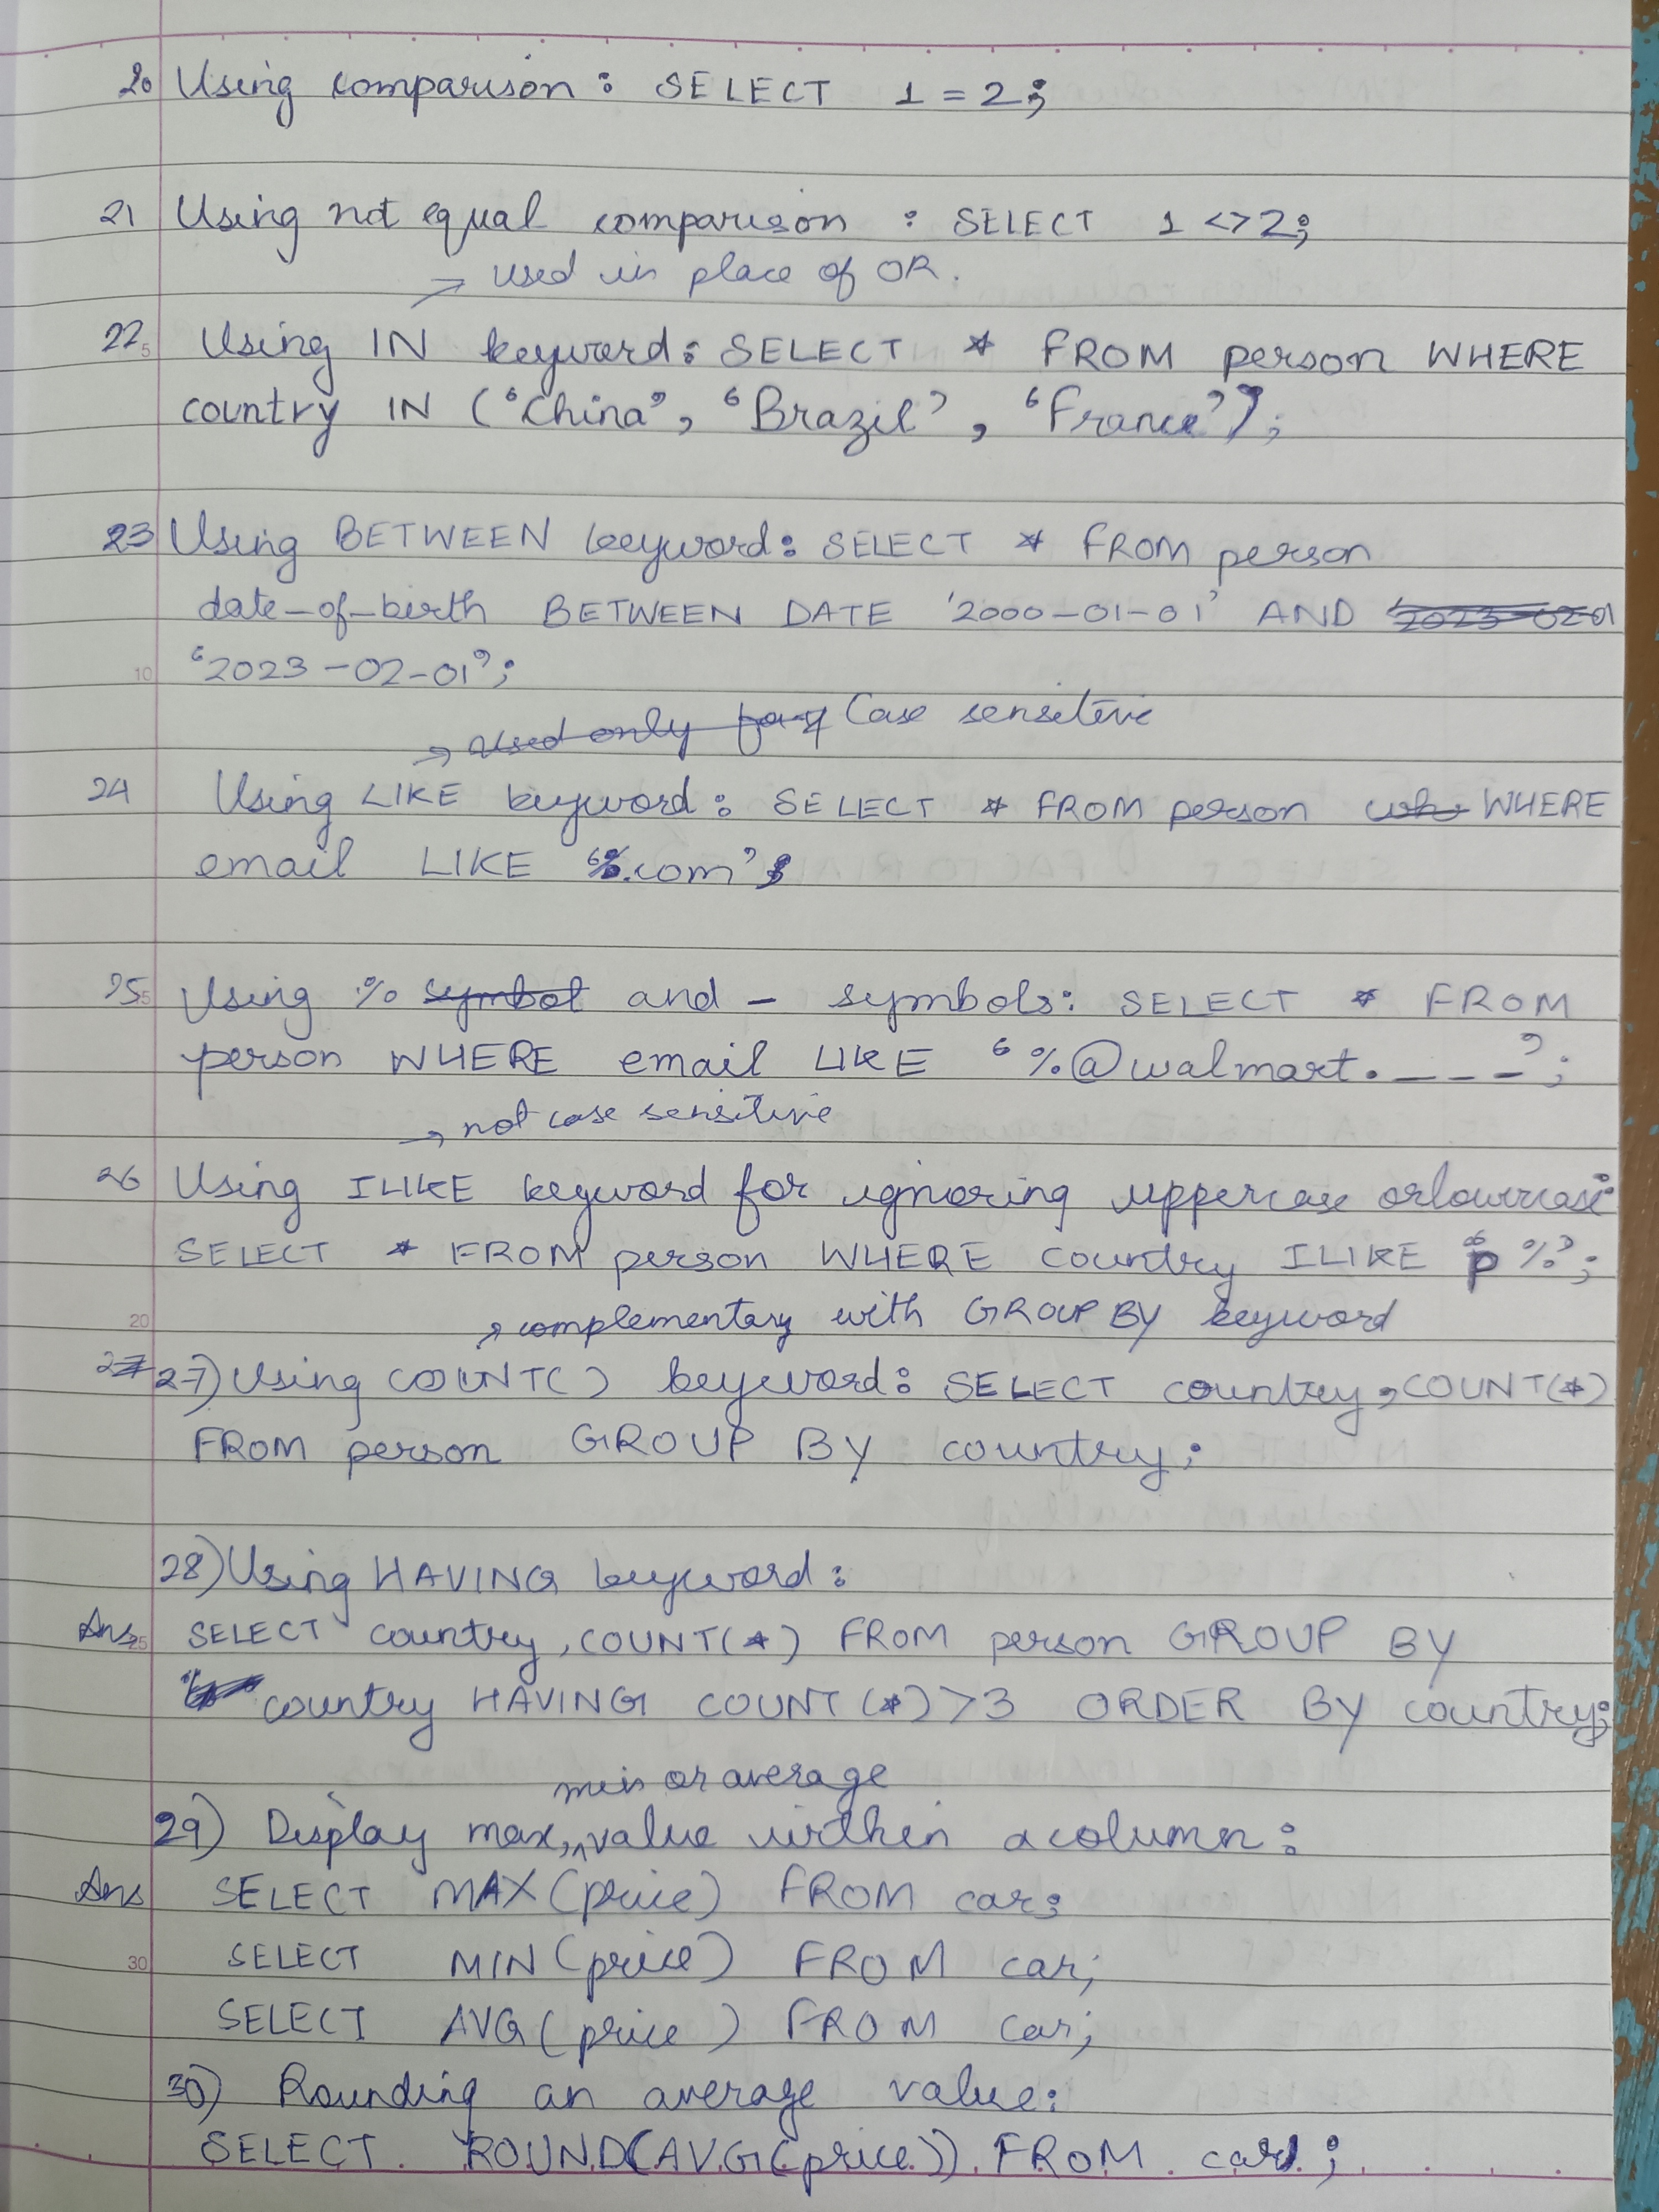 20 Using comparison: SELECT 1 = 2;
21 Using not equal comparison : SELECT 1 <> 2;
→ used in place of OR.
22 Using IN keyword: SELECT * FROM person WHERE
country IN ('China', 'Brazil', 'France');
23 Using BETWEEN keyword: SELECT * FROM person
date_of_birth BETWEEN DATE '2000-01-01' AND 2023-02-01
10 '2023-02-01';
→ used only for Case sensitive
24 Using LIKE keyword: SELECT * FROM person whe WHERE
email LIKE '%.com';
25 Using % symbol and _ symbols: SELECT * FROM
person WHERE email LIKE '%@walmart.___';
→ not case sensitive
26 Using ILIKE keyword for ignoring uppercase or lowercase:
SELECT * FROM person WHERE country ILIKE 'p%';
20 → complementary with GROUP BY keyword
27 27) Using COUNT() keyword: SELECT country, COUNT(*)
FROM person GROUP BY country;
28) Using HAVING keyword:
Ans 25 SELECT country, COUNT(*) FROM person GROUP BY
country HAVING COUNT(*)>3 ORDER BY country;
min or average
29) Display max, value within a column:
Ans SELECT MAX(price) FROM car;
30 SELECT MIN(price) FROM car;
SELECT AVG(price) FROM car;
30) Rounding an average value:
SELECT ROUND(AVG(price)) FROM car;